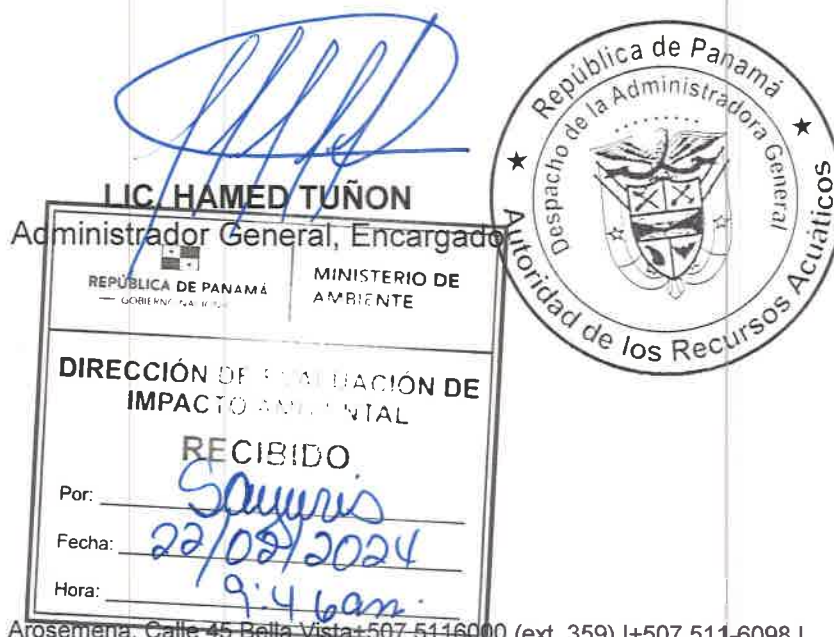 LIC. HAMED TUÑON
Administrador General, Encargado
República de Panamá
Despacho de la Administradora General
Autoridad de los Recursos Acuáticos
REPÚBLICA DE PANAMÁ
— GOBIERNO NACIONAL —
MINISTERIO DE
AMBIENTE
DIRECCIÓN DE EVALUACIÓN DE
IMPACTO AMBIENTAL
RECIBIDO
Por: Sayuris
Fecha: 22/02/2024
Hora: 9:46am.
Arosemena, Calle 45 Bella Vista+507-5116000 (ext. 359) |+507 511-6098 |